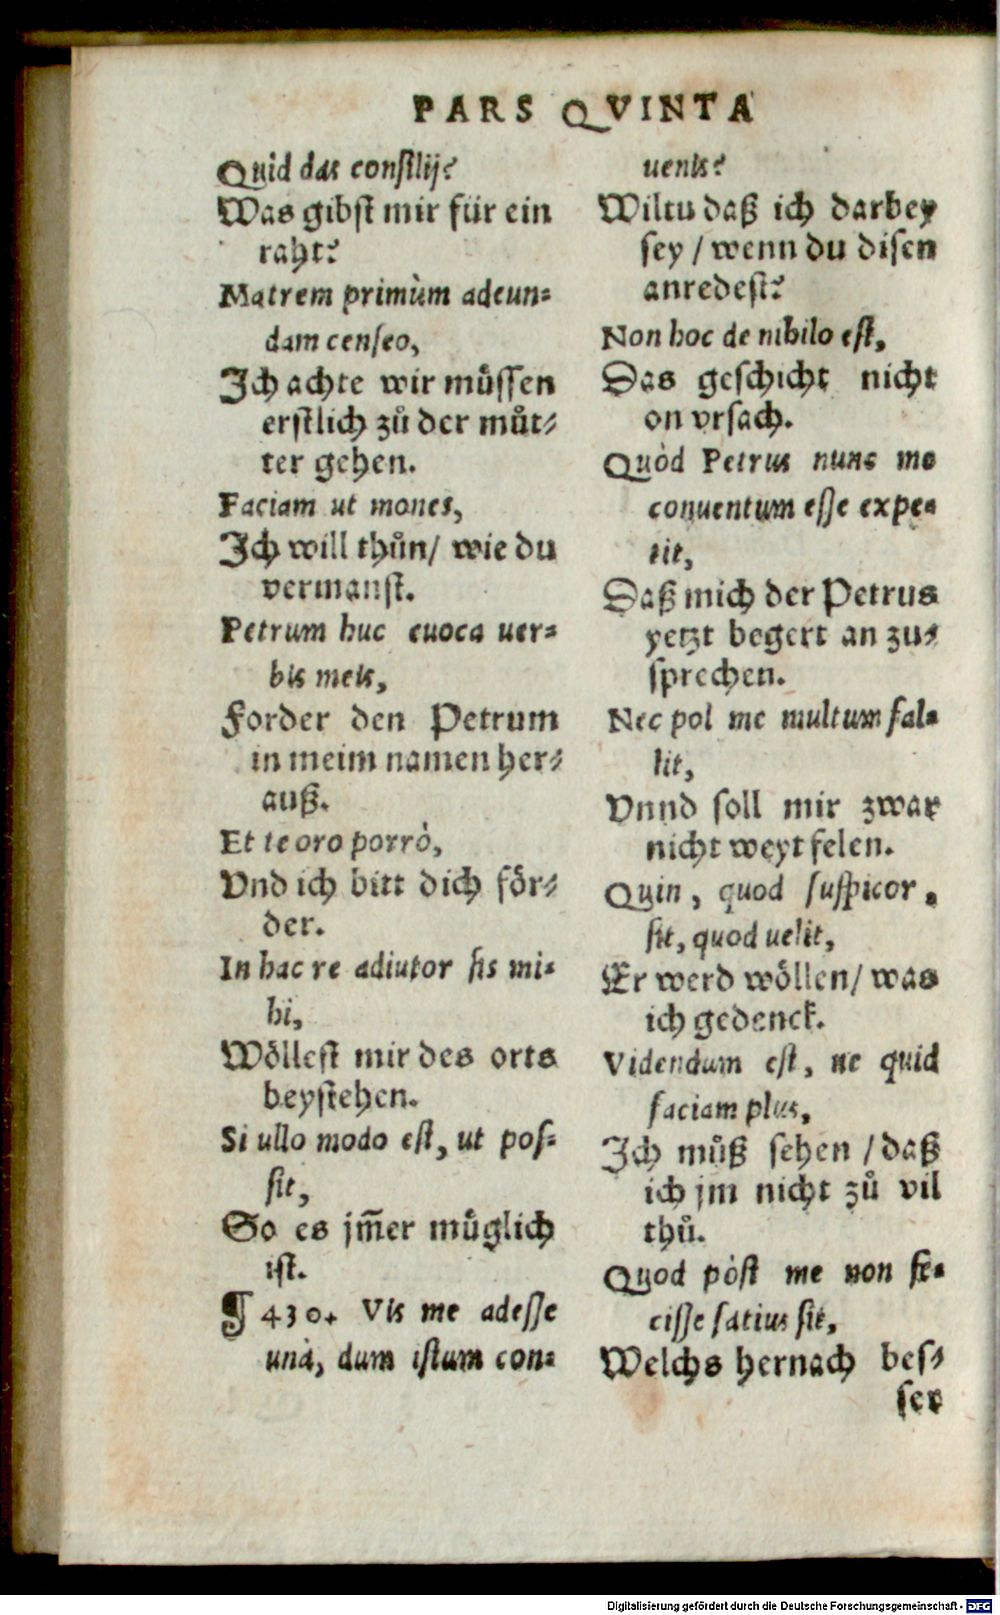 PARS QVINTA
Quid das consilij?
Was gibst mir für ein
raht?
Matrem primùm adeun=
dam censeo,
Ich achte wir müssen
erstlich zů der můt⸗
ter gehen.
Faciam ut mones,
Ich will thůn/ wie du
vermanst.
Petrum huc euoca uer=
bis meis,
Forder den Petrum
in meim namen her⸗
auß.
Et te oro porrò,
Vnd ich bitt dich för⸗
der.
In hac re adiutor sis mi=
hi,
Wöllest mir des orts
beystehen.
Si ullo modo est, ut pos=
sit,
So es jm̃er müglich
ist.
¶ 430. Vis me adesse
unà, dum istum con=
uenis?
Wiltu daß ich darbey
sey / wenn du disen
anredest?
Non hoc de nihilo est,
Das geschicht nicht
on vrsach.
Quòd Petrus nunc me
conuentum esse expe=
tit,
Daß mich der Petrus
yetzt begert an zu⸗
sprechen.
Nec pol me multum fal=
lit,
Vnnd soll mir zwar
nicht weyt felen.
Quin, quod suspicor,
sit, quod uelit,
Er werd wöllen/ was
ich gedenck.
Videndum est, ne quid
faciam plus,
Ich můß sehen / daß
ich jm nicht zů vil
thů.
Quod pòst me non fe=
cisse satius sit,
Welchs hernach bes⸗
ser
Digitalisierung gefördert durch die Deutsche Forschungsgemeinschaft - DFG